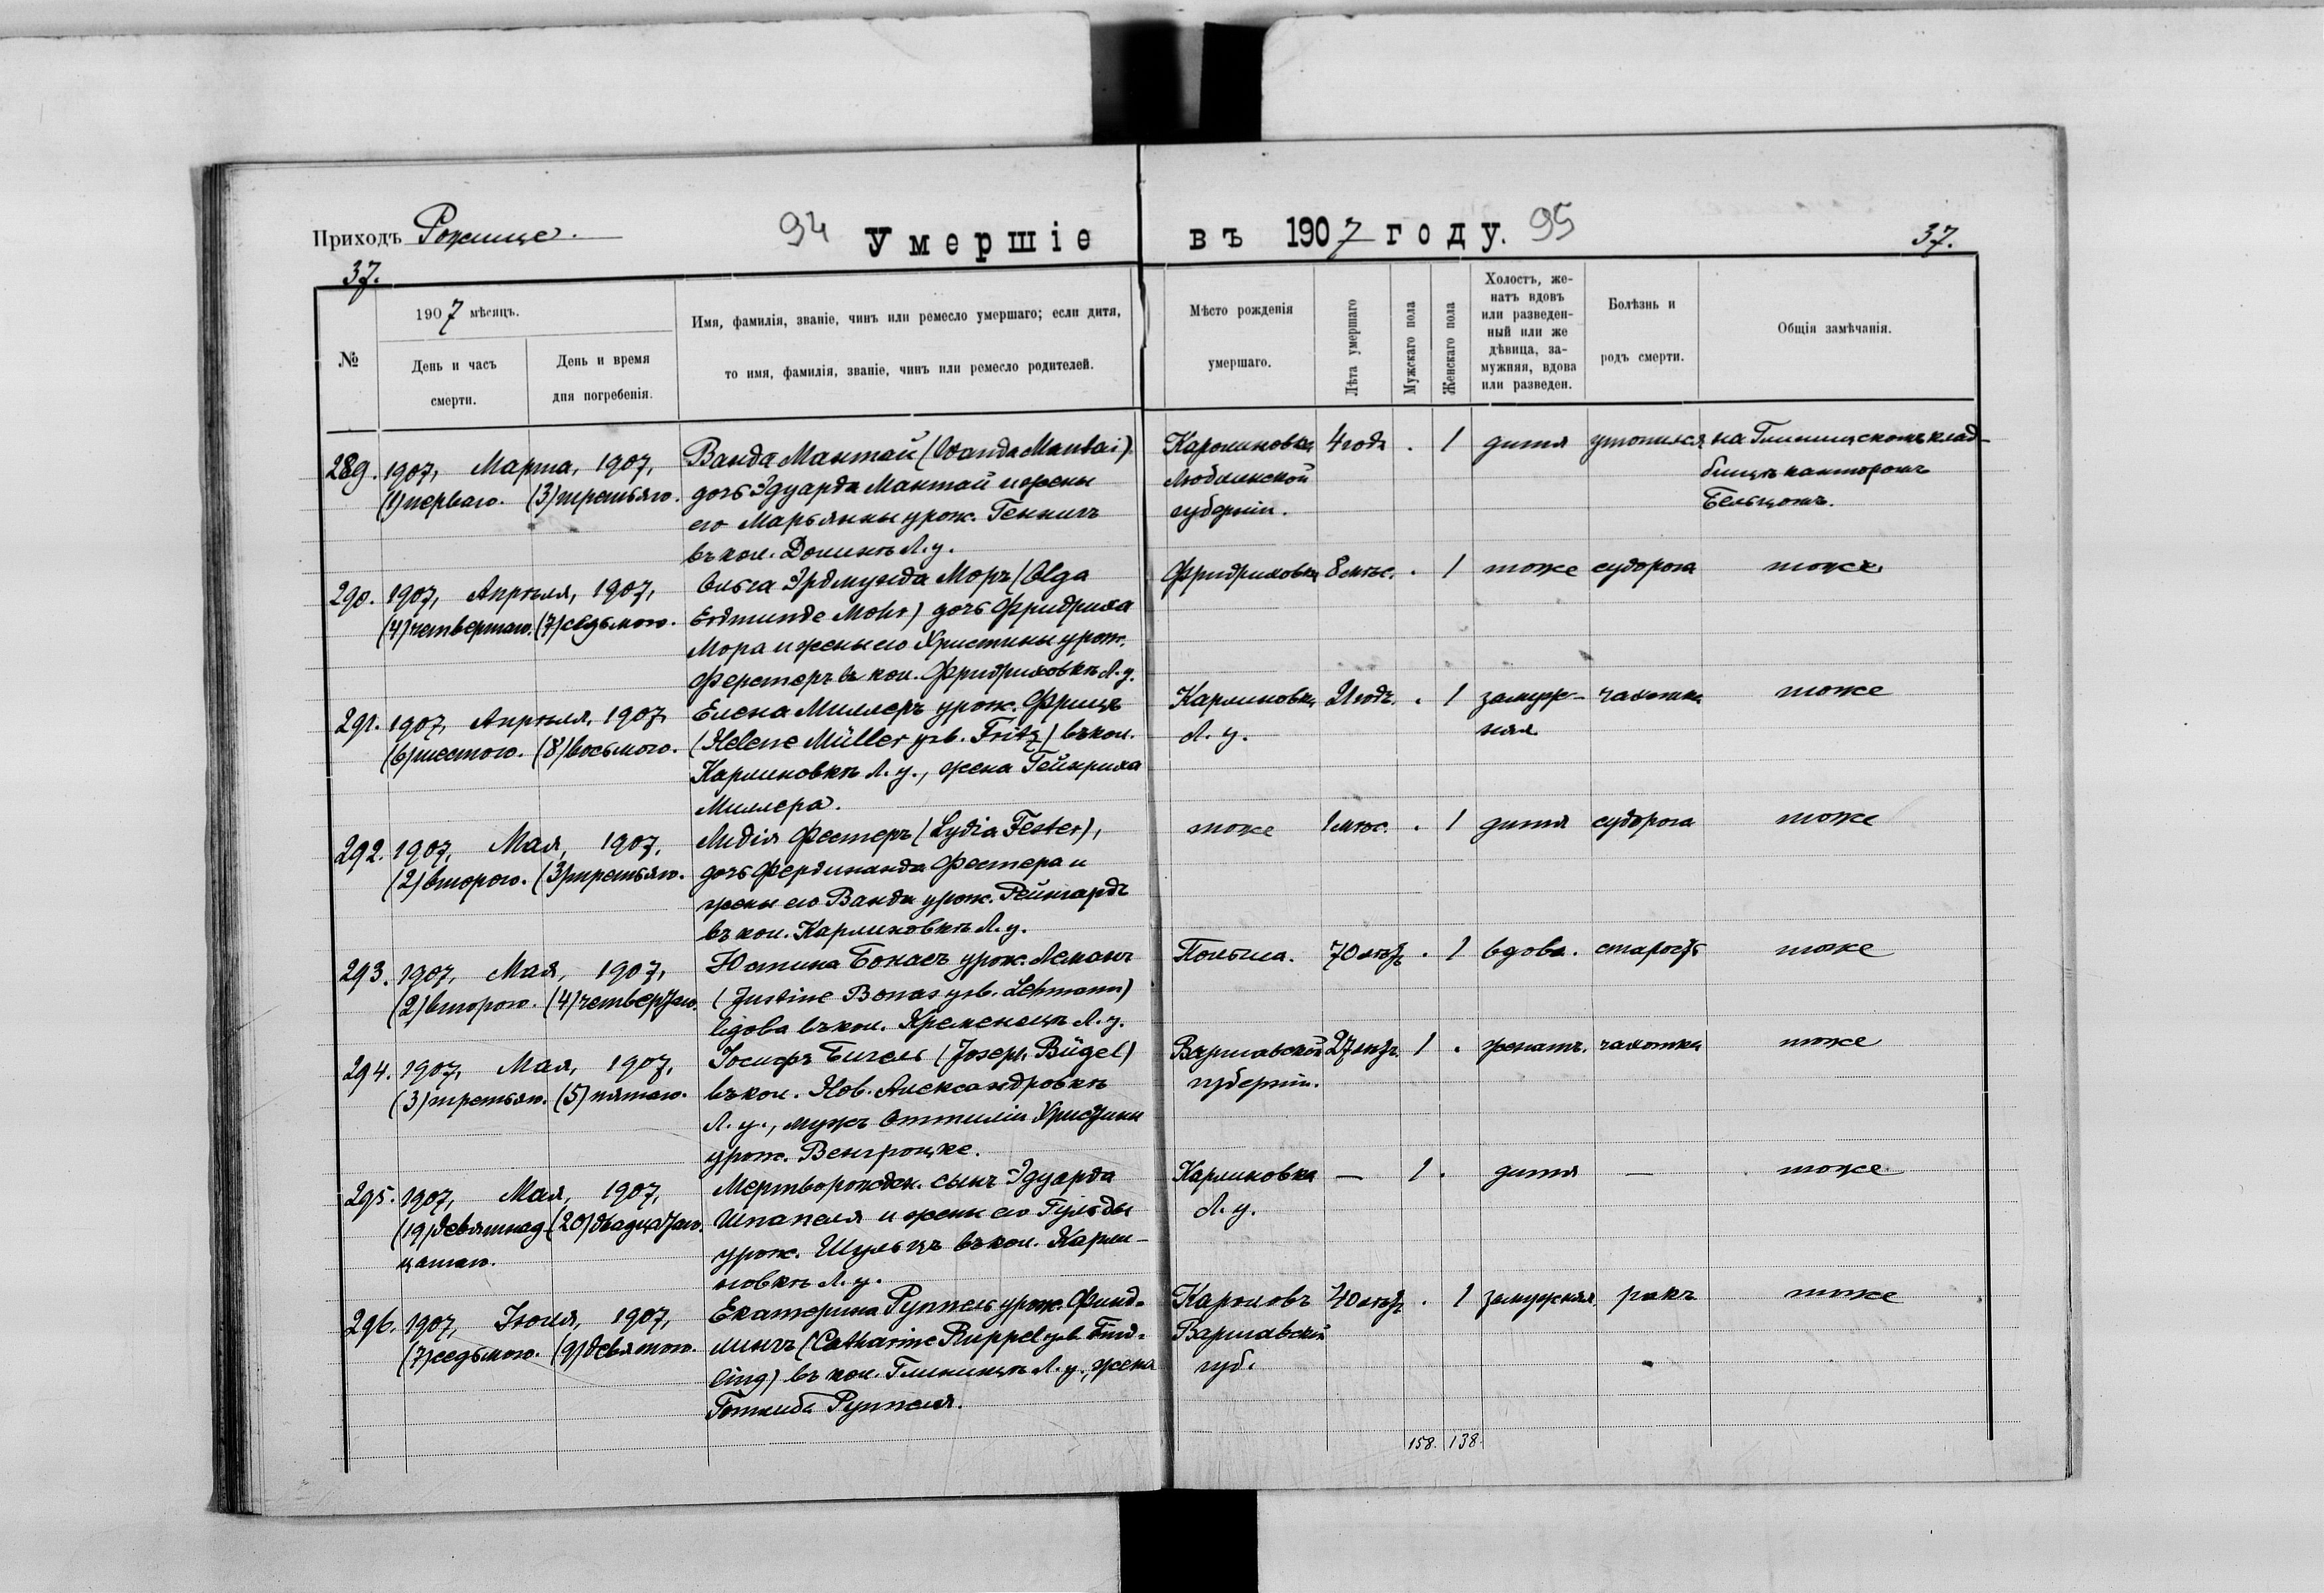 Приходъ Рожище.
94 Умершіе въ 1907 году. 95
37.
37.
№
1907 мѣсяцъ.
День и часъ смерти.
День и время дня погребенія.
Имя, фамилія, званіе, чинъ или ремесло умершаго; если дитя,
то имя, фамилія, званіе, чинъ или ремесло родителей.
Мѣсто рожденія
умершаго.
Лѣта умершаго
Мужскаго пола
Женскаго пола
Холостъ, же-
натъ вдовъ
или разведен-
ный или же
дѣвица, за-
мужняя, вдова
или разведен.
Болѣзнь и
родъ смерти.
Общія замѣчанія.
289. 1907, Марта, 1907,
(1) перваго. (3) третьяго.
Ванда Мантай (Wanda Mantai).
дочь Эдуарда Мантай и жены
его Марьянны урож. Геннигъ
въ кол. Долинѣ Л. у.
Каролиновка
Люблинской
губерніи.
4 года . 1 дитя утонился на Глинищскомъ клад-
бищѣ канторомъ
Бельцомъ.
290. 1907, Апрѣля, 1907,
(4) четвертаго. (7) седьмого.
Ольга Эрдмунда Моръ (Olga
Erdmunde Mohr) дочь Фридриха
Мора и жены его Христины урож.
Ферстеръ въ кол. Фридриховкѣ Л. у.
Фридриховка 8 мѣс. . 1 тоже судорога тоже
291. 1907, Апрѣля, 1907,
(6) шестого. (8) восьмого.
Елена Миллеръ урож. Фрицъ
(Helene Müller geb. Fritz) въ кол.
Карлиновкѣ Л. у., жена Гейнриха
Миллера.
Карлиновка
Л. у.
21 годъ. . 1 замуж-
няя
чахотка тоже
292. 1907, Мая, 1907,
(2) второго. (3) третьяго.
Лидія Фестеръ (Lydia Fester),
дочь Фердинанда Фестера и
жены его Ванды урож. Рейнгардъ
въ кол. Карлиновкѣ Л. у.
тоже 1 мѣс. . 1 дитя судорога тоже
293. 1907, Мая, 1907,
(2) второго. (4) четвертаго.
Юстина Бонасъ урож. Леманъ
(Justine Bonas geb. Lehmann)
вдова въ кол. Кременецѣ Л. у.
Польша. 70 лѣтъ . 1 вдова. старость тоже
294. 1907, Мая, 1907,
(3) третьяго. (5) пятаго.
Іосифъ Бигель (Joseph Bügel)
въ кол. Нов. Александровкѣ
Л. у., мужъ Оттиліи Христины
урож. Венгроцке.
Варшавской
губерніи.
27 лѣтъ 1 . женатъ. чахотка тоже
295. 1907, Мая, 1907,
(19) девятнад- (20) двадцатаго.
цатаго.
Мертворожден. сынъ Эдуарда
Шпапеля и жены его Гульды
урож. Шульцъ въ кол. Карли-
новкѣ Л. у.
Карлиновка
Л. у.
— 1 . дитя — тоже
296. 1907, Іюля, 1907,
(7) седьмого. (9) девятого.
Екатерина Руппель урож. Финд-
лингъ (Catharine Ruppel geb. Find-
ling) въ кол. Глинищѣ Л. у., жена
Готлиба Руппеля.
Каролевъ
Варшавской
губ.
40 лѣтъ . 1 замужняя ракъ тоже
158. 138.